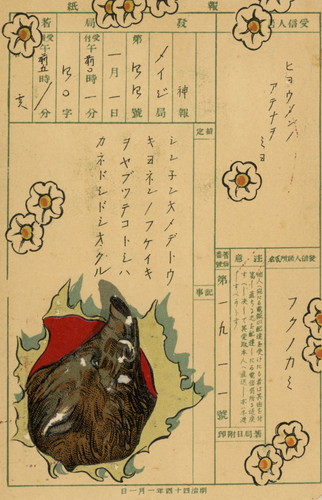 報紙
受信人
ヒヨウメンノ
アテナヲ
ミヨ
發信人居所氏名
フクノカミ
注意
第一九一一號
著局日附印
指定
シンネンオメデトウ
キヨネンノフケイキ
ヲヤブツテコトシハ
カネドシドシオクル
記事
發局
メイジ局
第四四號
一月一日
午前〇時
四〇字
著局
受付
一分
亥
明治四十四年一月一日